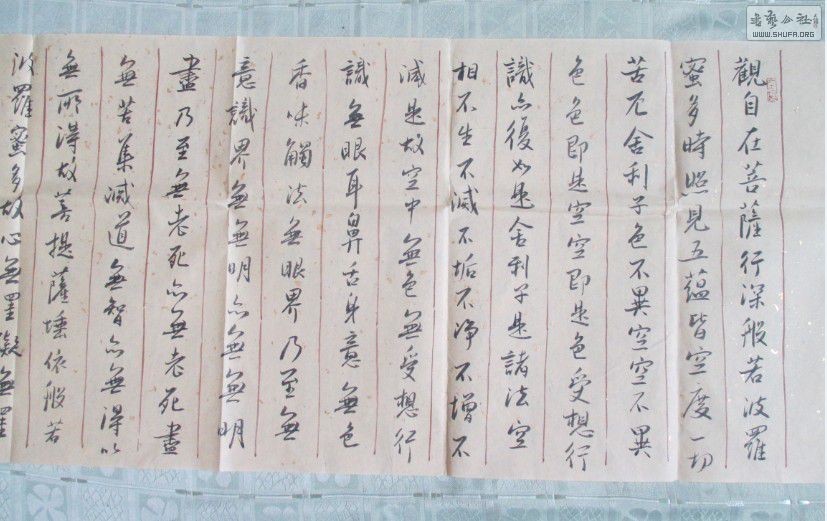 觀自在菩薩行深般若波羅
蜜多時照見五蘊皆空度一切
苦厄舍利子色不異空空不異
色色即是空空即是色受想行
識亦復如是舍利子是諸法空
相不生不滅不垢不淨不增不
減是故空中無色無受想行
識無眼耳鼻舌身意無色
香味觸法無眼界乃至無
意識界無無明亦無無明
盡乃至無老死亦無老死盡
無苦集滅道無智亦無得以
無所得故菩提薩埵依般若
波羅蜜多故心無罣礙無罣
书艺公社
WWW.SHUFA.ORG